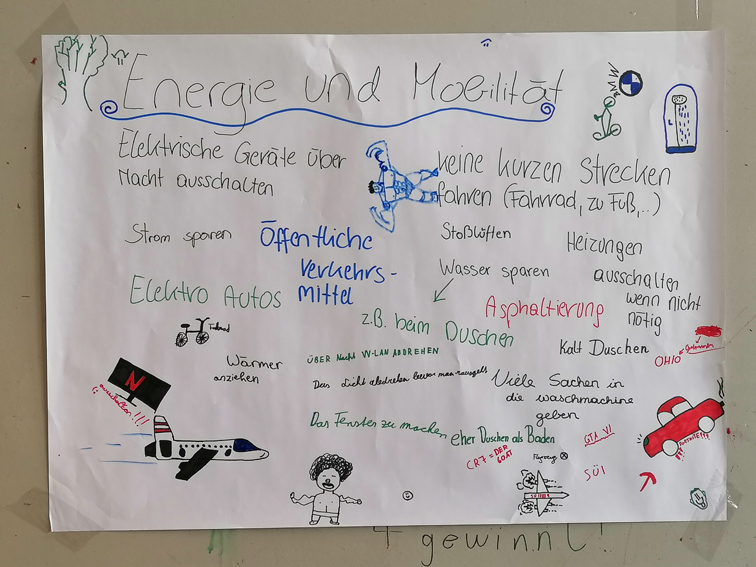 Energie und Mobilität
BMW
Elektrische Geräte über
Nacht ausschalten
keine kurzen Strecken
fahren (Fahrrad, zu Fuß,..)
Strom sparen
Öffentliche
Verkehrs-
mittel
Stoßlüften
Heizungen
ausschalten
wenn nicht
nötig
Wasser sparen
z.B. beim Duschen
Elektro Autos
Asphaltierung
Fahrrad
Kalt Duschen
OHIO
Wärmer
anziehen
ÜBER Nacht W-LAN ABDREHEN
Das Licht abdrehen bevor man rausgeht
Viele Sachen in
die waschmachine
geben
N
ausschalten!!!
Das Fenster zu machen
eher Duschen als Baden
CR7 = DER
GOAT
GTA VI
Flugzeug
SÜI
4 gewinnt!